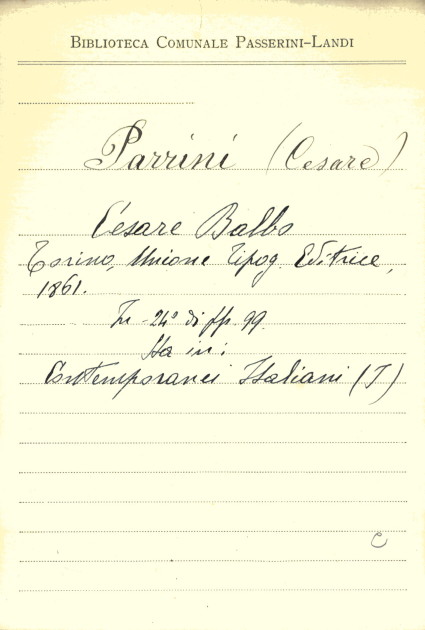 BIBLIOTECA COMUNALE PASSERINI-LANDI
Parrini (Cesare)
Cesare Balbo
Torino, Unione Tipog. Editrice,
1861.
In-24º di pp. 99.
Sta in:
Contemporanei Italiani (I)
C